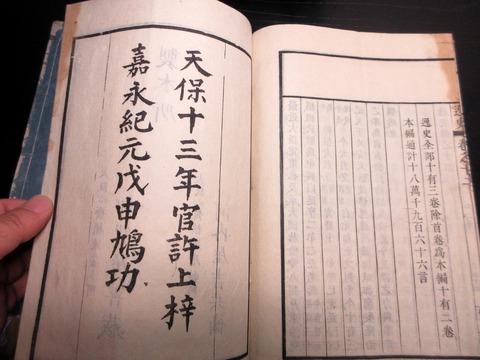 逸史
逸史全部十有三卷除首卷爲本編十有二卷
本編通計十八萬千九百六十六言
天保十三年官許上梓
嘉永紀元戊申鳩功